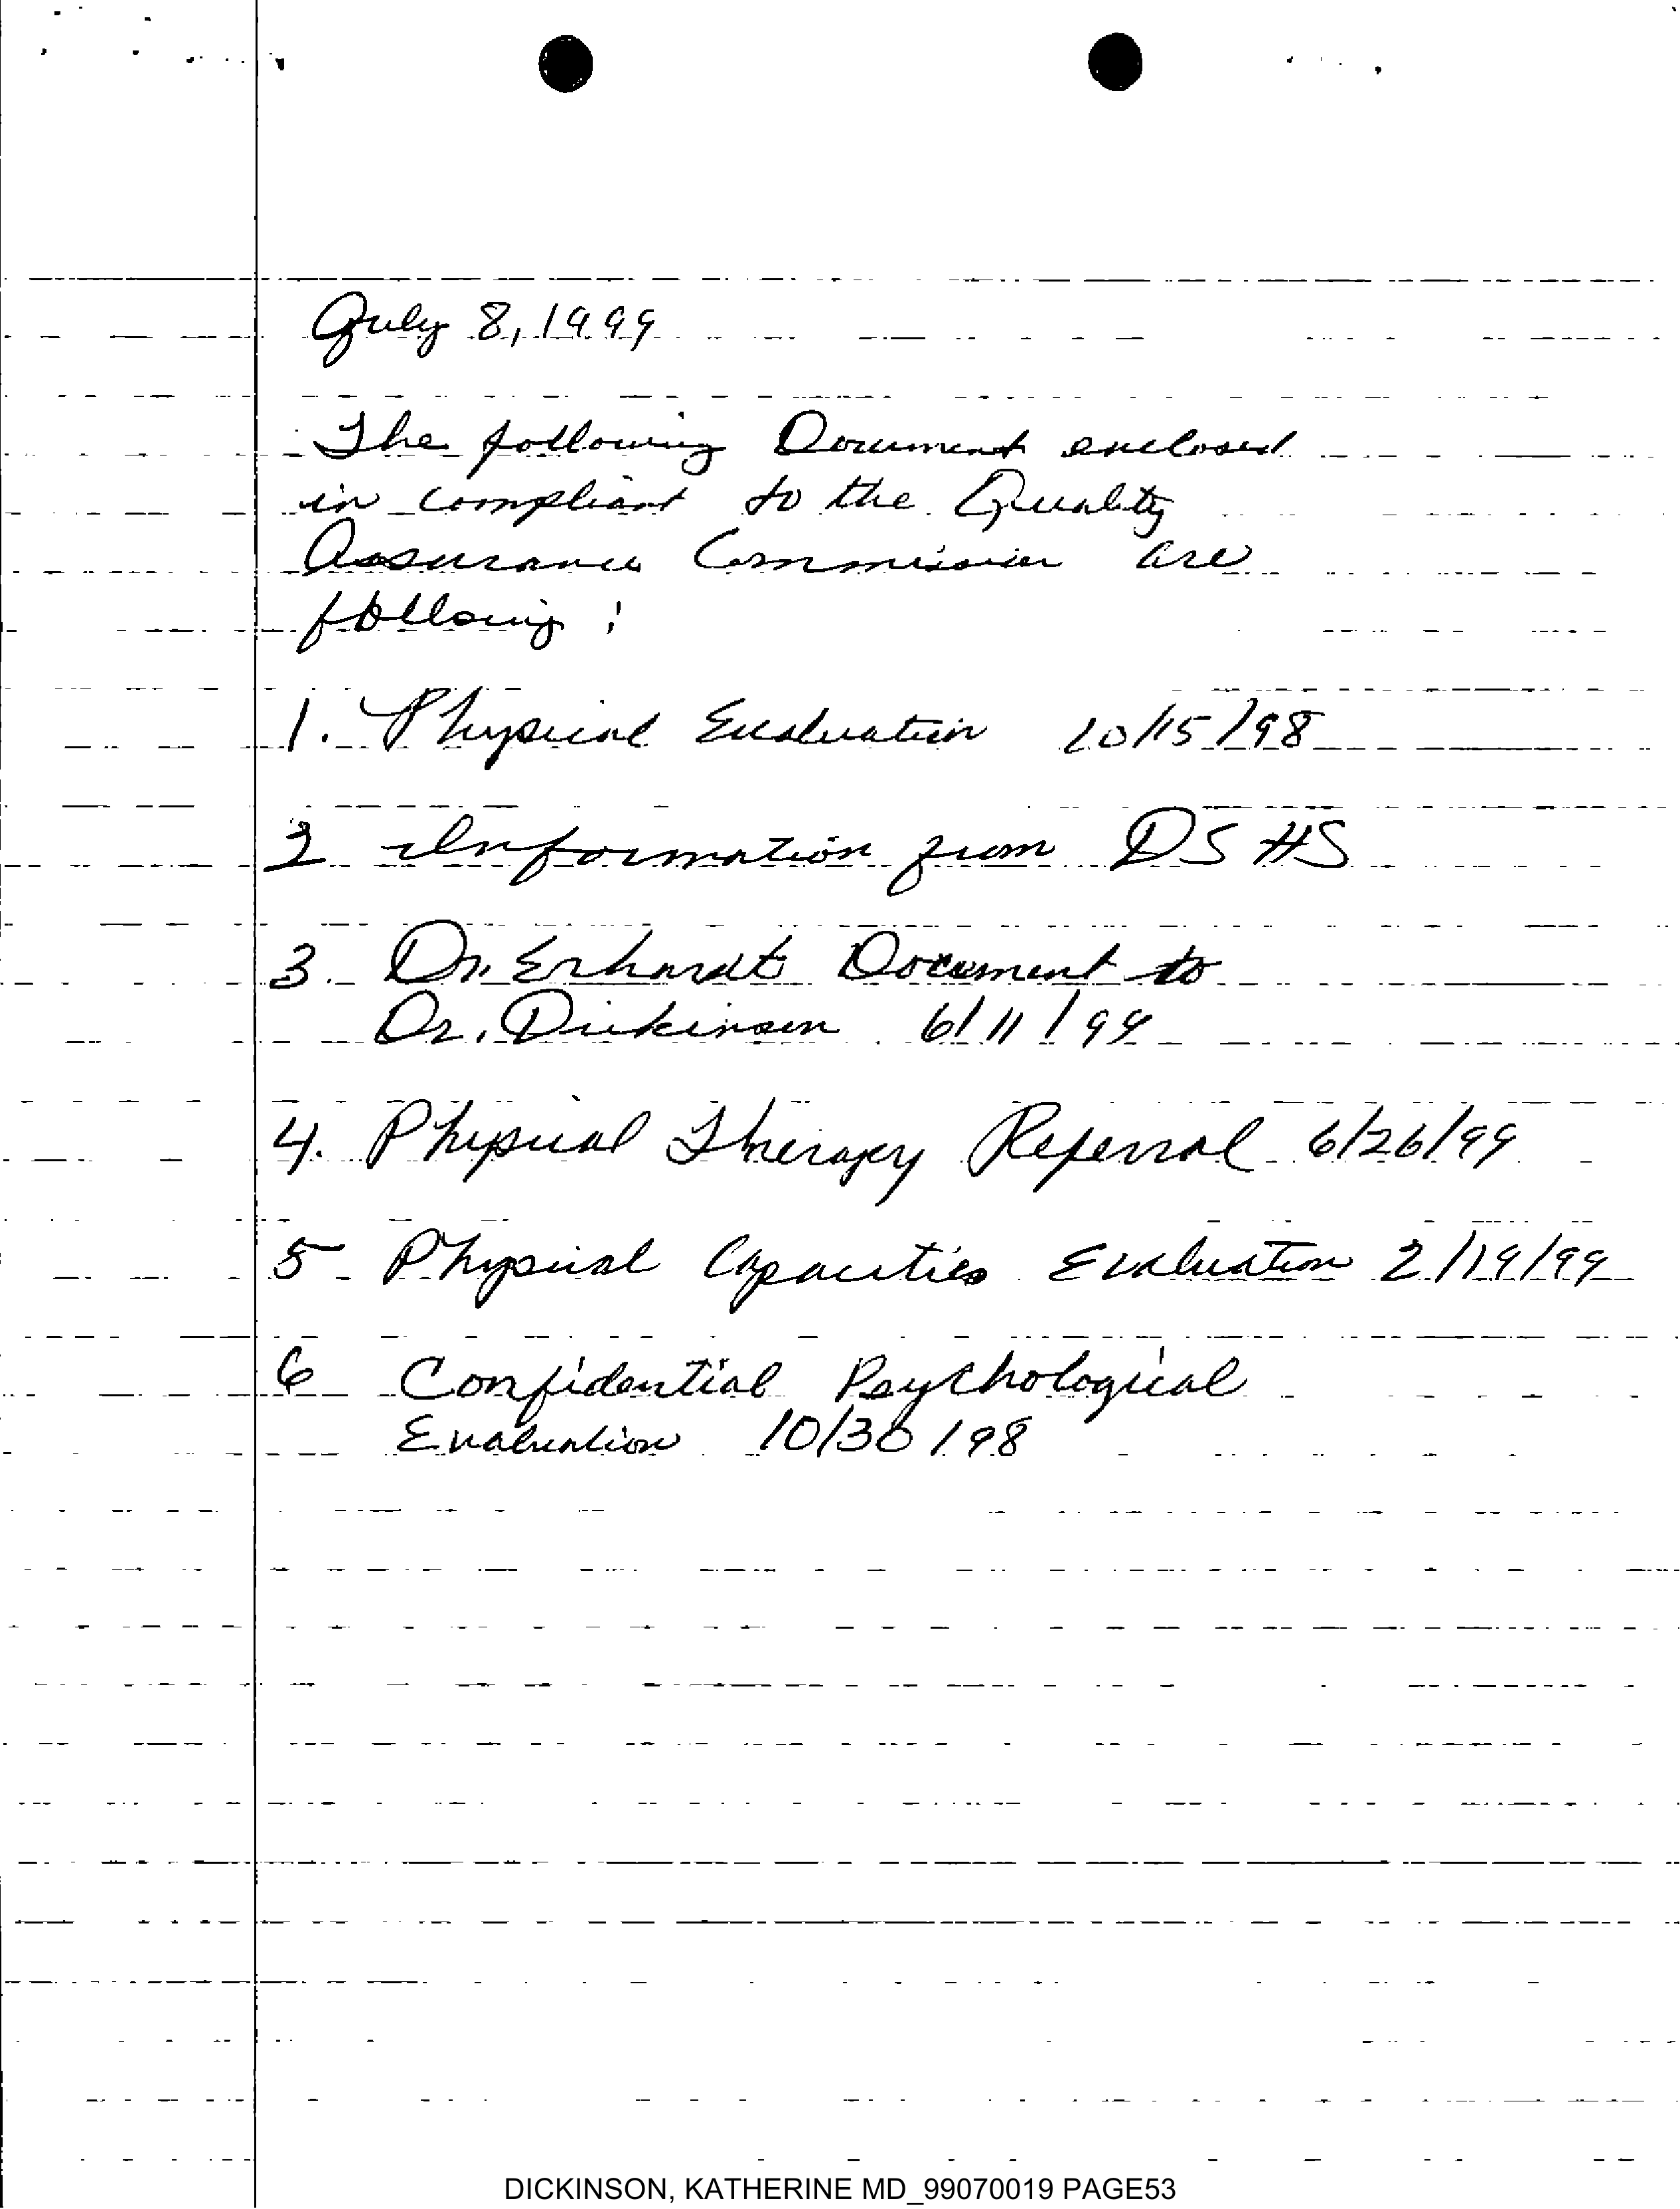 July 8, 1999
The following Document enclosed
in compliant to the Quality
Assurance Commission are
following :
1. Physical Evaluation 10/15/98
2 Information from DSHS
3. Dr. Erhardt Document to
Dr. Dickinson 6/11/99
4. Physical Therapy Referral 6/26/99
5 - Physical Capacities Evaluation 2/19/99
6 Confidential Psychological
Evaluation 10/30/98
DICKINSON, KATHERINE MD_99070019 PAGE53